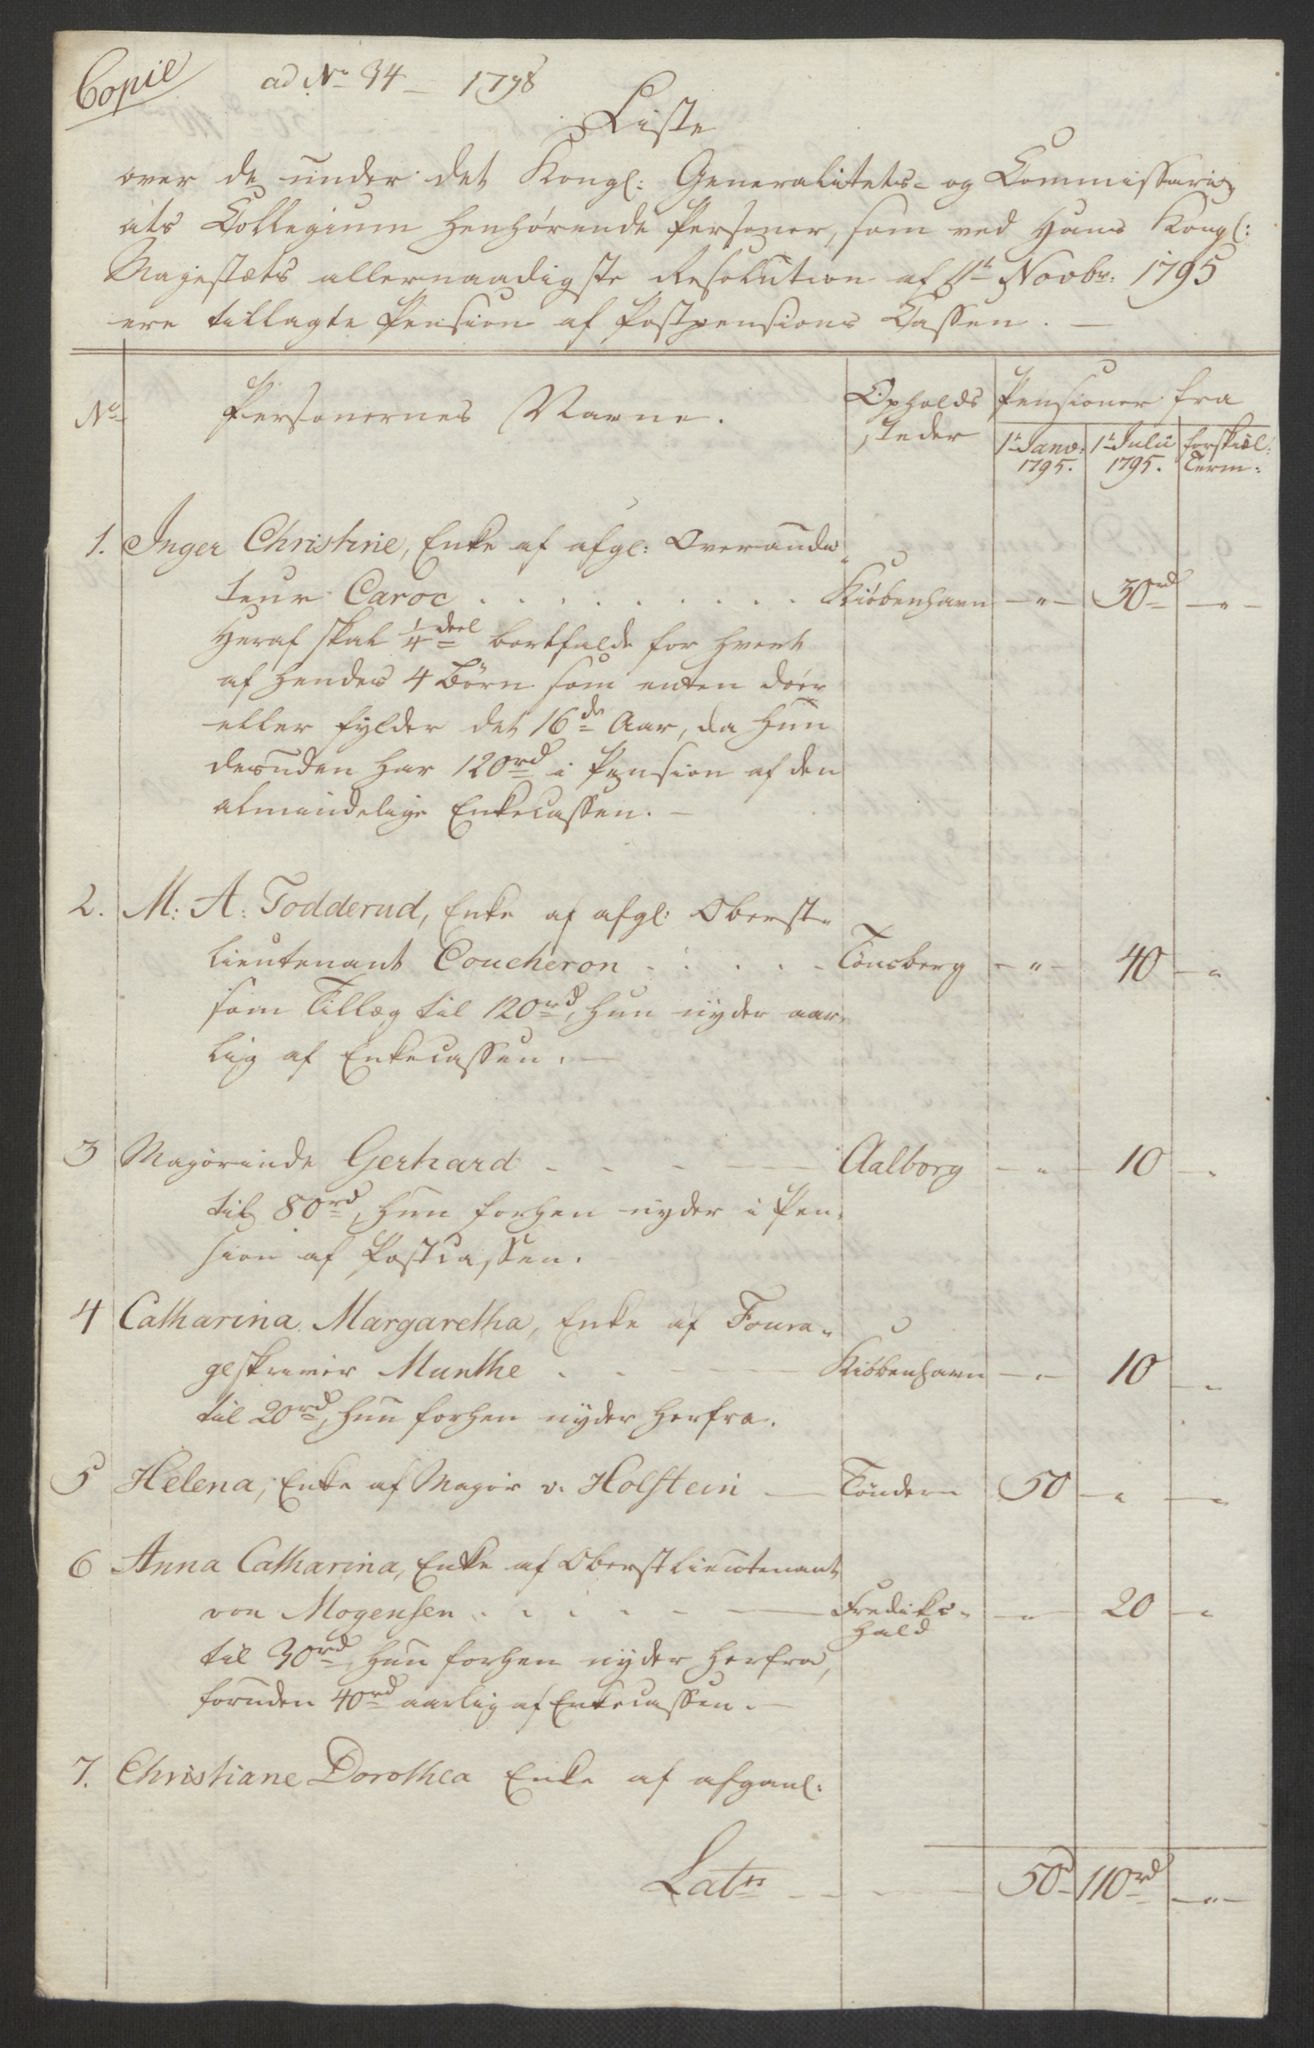 Copie
ad No 34 - 1798
Liste
over de under det Kongl: Generalitets- og Commissari-
ats Collegium henhørende Personer, som ved Hans Kongl:
Majestæts allernaadigste Resolution af 11t Novbr: 1795
ere tillagte Pension af Postpensions Cassen. -
No Personernes Navne. Opholds Pensioner fra
steder 1t Janv: 1t Julii forskiæl:
1795. 1795. Term:
1. Inger Christine, Enke af afgl: Overaudi-
teur Caroc . . . . . . . . . Kiøbenhavn -"- 30rd -"-
Heraf skal 1/4 deel bortfalde for hvert
af hendes 4 Børn som enten døer
eller fylder det 16de Aar, da hun
desuden har 120rd i Pension af den
almindelige Enkecassen. -
2. M: A: Todderud, Enke af afgl: Oberst-
lieutenant Coucheron . . . . . Tønsberg -"- 40 -"
som Tillæg til 120rd, hun nyder aar-
lig af Enkecassen. -
3 Majorinde Gerhard - - - - Aalborg -"- 10 -"
til 80rd, hun forhen nyder i Pen-
sion af Postcassen.
4 Catharina Margaretha, Enke af Foura-
geskriver Munthe . . - Kiøbenhavn -"- 10 -"
til 20rd, hun forhen nyder herfra.
5 Helena, Enke af Major v. Holstein - Tøndern 50 -"- -"
6 Anna Catharina, Enke af Oberstlieutenant
von Mogensen . . . . - - Fredriks- -"- 20 -"
hald
til 30rd, hun forhen nyder herfra,
foruden 40rd aarlig af Enkecassen. -
7. Christiane Dorothea Enke af afganl:
Latus - - 50rd 110rd -"-